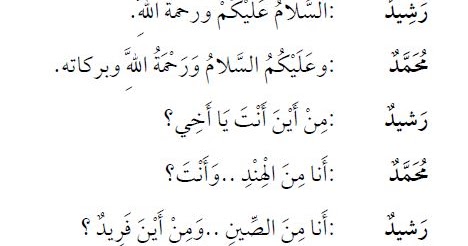 رَشِيدٌ :السَّلَامُ عَلَيْكُمْ ورحمةُ اللهِ.
مُحَمَّدٌ :وعَلَيْكُمُ السَّلامُ وَرَحْمَةُ اللهَِّ وبركاته.
رَشيدٌ :مِنْ أَيْنَ أَنْتَ يَا أَخِي؟
مُحَمَّدٌ :أَنا مِنَ الْهِنْدِ ..وَأَنْتَ؟
رَشيدٌ :أَنَا مِنَ الصِّينِ ..وَمِنْ أَيْنَ فَرِيدٌ ؟